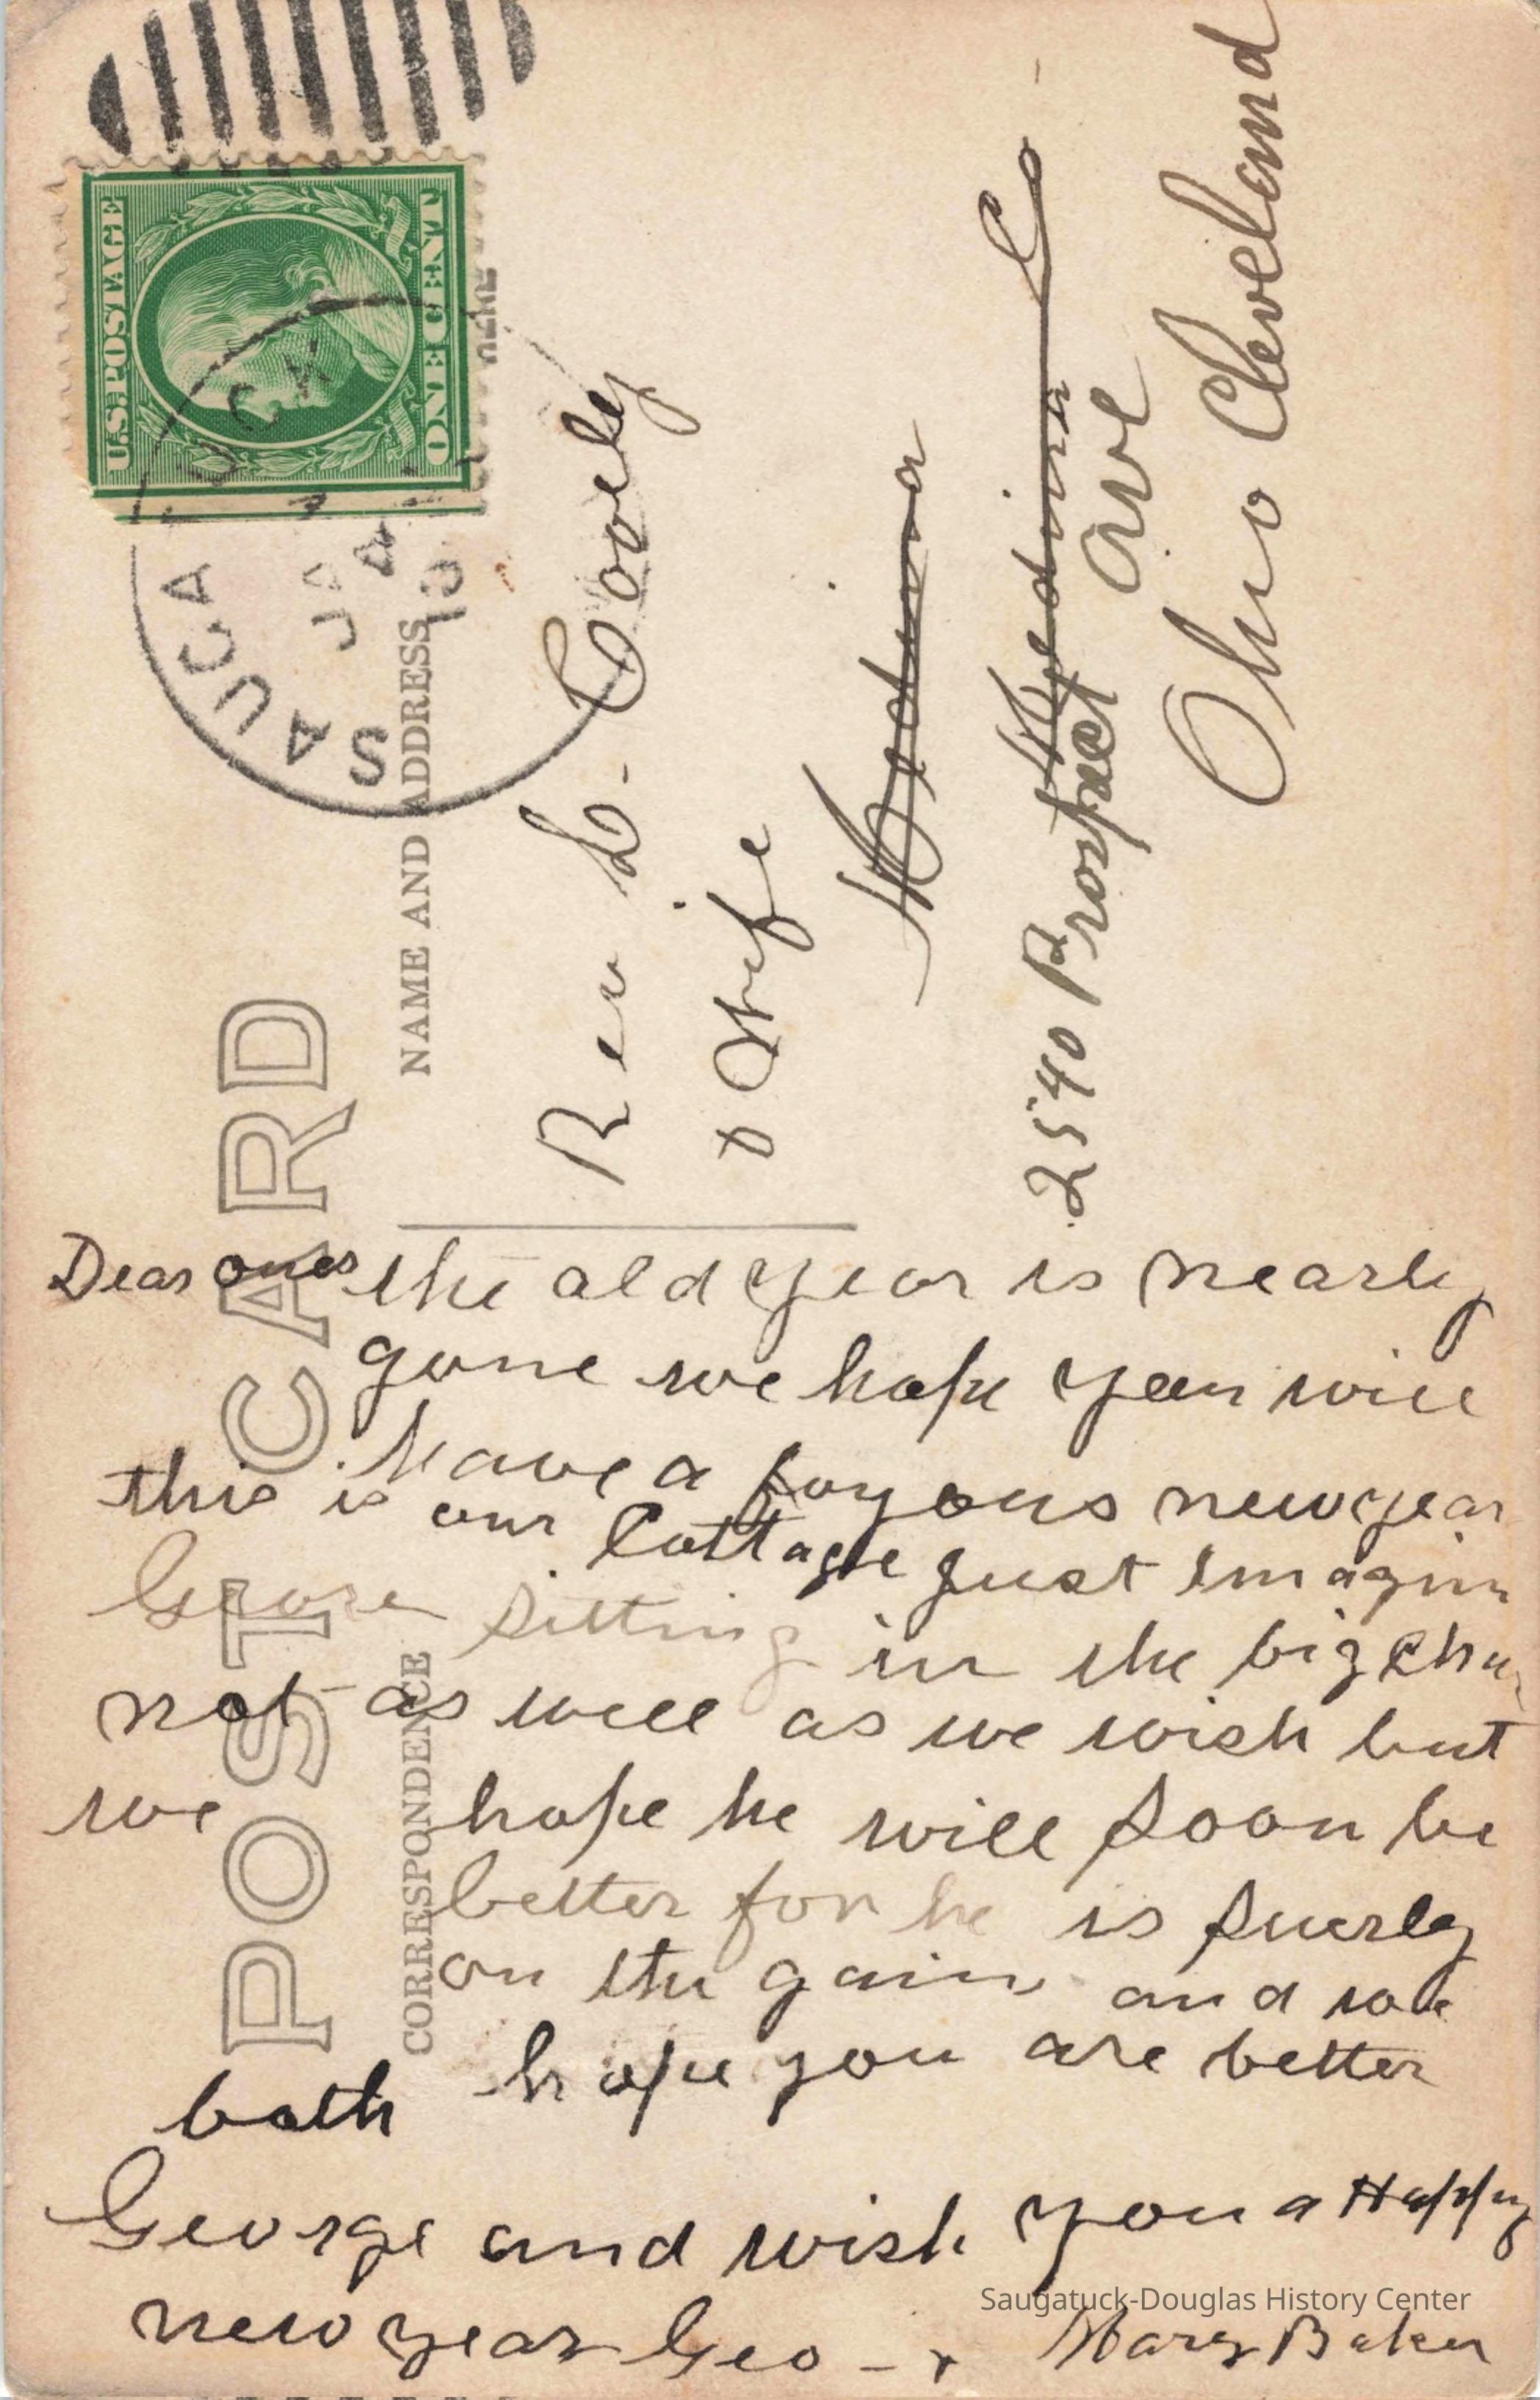 U.S. POSTAGE
ONE CENT
SAUGATUCK
JA
POST CARD
NAME AND ADDRESS
CORRESPONDENCE
Rev L. Cooley
& Wife
Medina
Medina Co
2540 Prospect ave
Ohio Cleveland
Dear ones the old year is nearly
gone we hope you will
have a joyous new year
this is our Cottage just imagin
George sitting in the big
not as well as we wish but
we hope he will soon be
better for he is suerly
on the gain and we
both hope you are better
George and wish you a Happy
new year Geo - + Mary Baker
Saugatuck-Douglas History Center